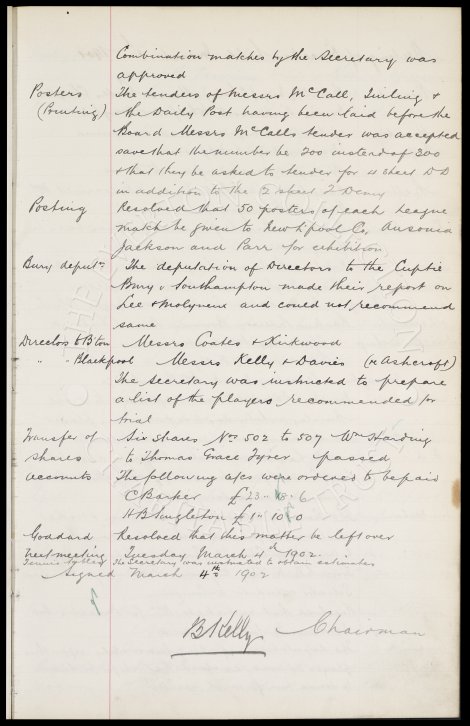 Combination matches by the Secretary was
approved
Posters The tenders of Messrs McCall, &
(Printing) the Daily Post having been laid before the
Board Messrs McCalls tender was accepted
save that the number be 200 instead of 300
& that they be asked to tender for 4 sheet DD
in addition to the 2 sheet 2 Demy
Posting Resolved that 50 posters of each League
match be given to New Lpool Co, Ausonia
Jackson and Parr for exhibition
Bury deputn The deputation of Directors to the Cuptie
Bury v Southampton made their report on
Lee & Molyneux and could not recommend
same
Directors to B'ton Messrs Coates & Kirkwood
" " Blackpool Messrs Kelly & Davies (re Ashcroft)
The Secretary was instructed to prepare
a list of the players recommended for
trial
Transfer of Six shares Nos 502 to 507 Wm Harding
shares to Thomas Grace Tyrer passed
accounts The following a/cs were ordered to be paid
C Barker £ 23 - 18 . 6
H B Singleton £ 1 " 10 - 0
Goddard Resolved that this matter be left over
next meeting Tuesday March 4th 1902.
The Secretary was instructed to obtain estimates
Signed March 4th 1902
B Kelly Chairman